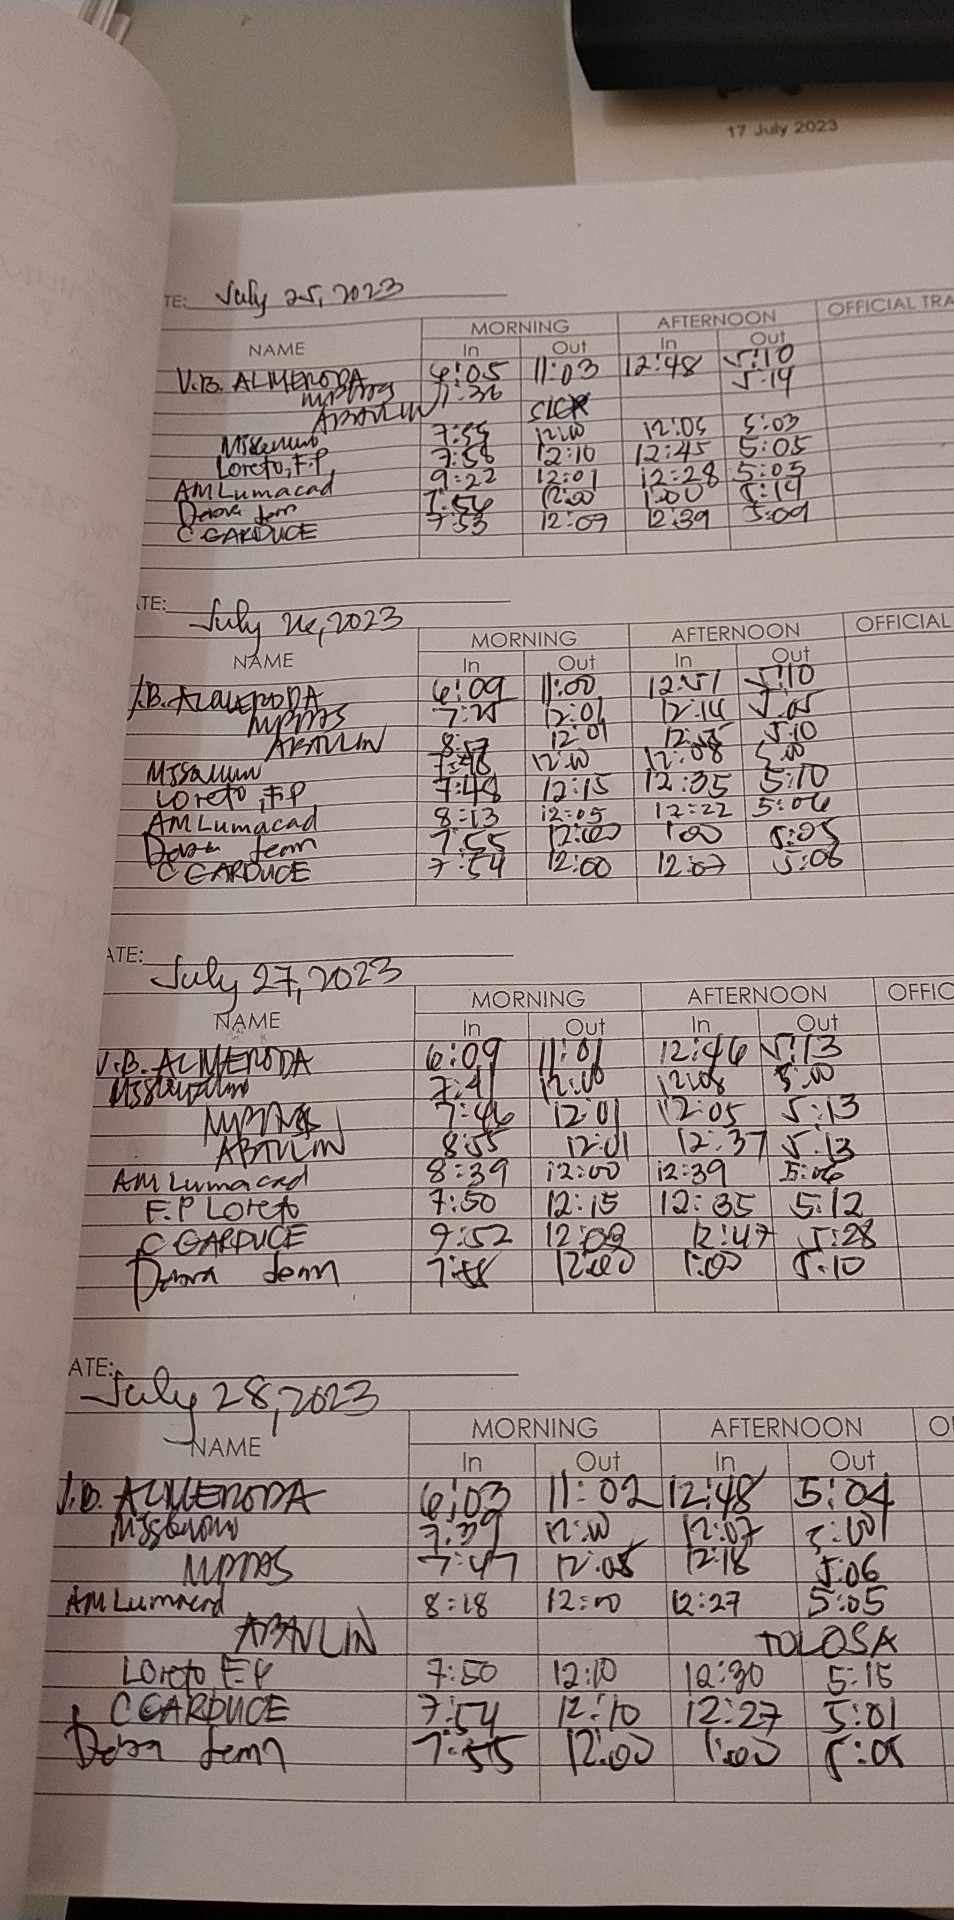 17 July 2023
TE: July 25, 2023
NAME MORNING AFTERNOON OFFICIAL TRA
In Out In Out
V.B. ALMERODA 6:05 11:03 12:48 5:10
7:36 5:14
ABAULIN SICK
7:55 12:00 12:05 5:03
Loreto, F.P. 7:58 12:10 12:45 5:05
AM Lumacad 9:22 12:01 12:28 5:05
7:56 12:00 1:00 5:14
C GARDUCE 7:53 12:07 12:39 5:09
TE: July 26, 2023
NAME MORNING AFTERNOON OFFICIAL
In Out In Out
.B. ALMERODA 6:09 11:00 12:51 5:10
12:01 12:14 5:05
ABAULIN 8:57 12:01 5:10
7:48 12:00 12:08 5:00
Loreto, F.P 7:48 12:15 12:35 5:10
AM Lumacad 8:13 12:05 12:22 5:06
7:55 12:00 1:00 5:05
C GARDUCE 7:54 12:00 12:07 5:06
ATE: July 27, 2023
NAME MORNING AFTERNOON OFFIC
In Out In Out
V.B. ALMERODA 6:09 11:01 12:46 5:13
7:41 12:00 12:08 5:00
7:46 12:01 12:05 5:13
ABAULIN 8:55 12:01 12:37 5:13
AM Lumacad 8:39 12:00 12:39 5:06
F.P Loreto 7:50 12:15 12:35 5:12
C GARDUCE 9:52 12:08 12:47 5:28
7:58 12:00 1:00 5:10
ATE: July 28, 2023
NAME MORNING AFTERNOON O
In Out In Out
.B. ALMERODA 6:03 11:02 12:48 5:04
7:39 12:00 12:07 5:00
7:47 12:05 12:18 5:06
AM Lumacad 8:18 12:00 12:27 5:05
ABAULIN TOLOSA
Loreto F.P 7:50 12:10 12:30 5:15
C GARDUCE 7:54 12:10 12:27 5:01
7:55 12:00 1:00 5:05